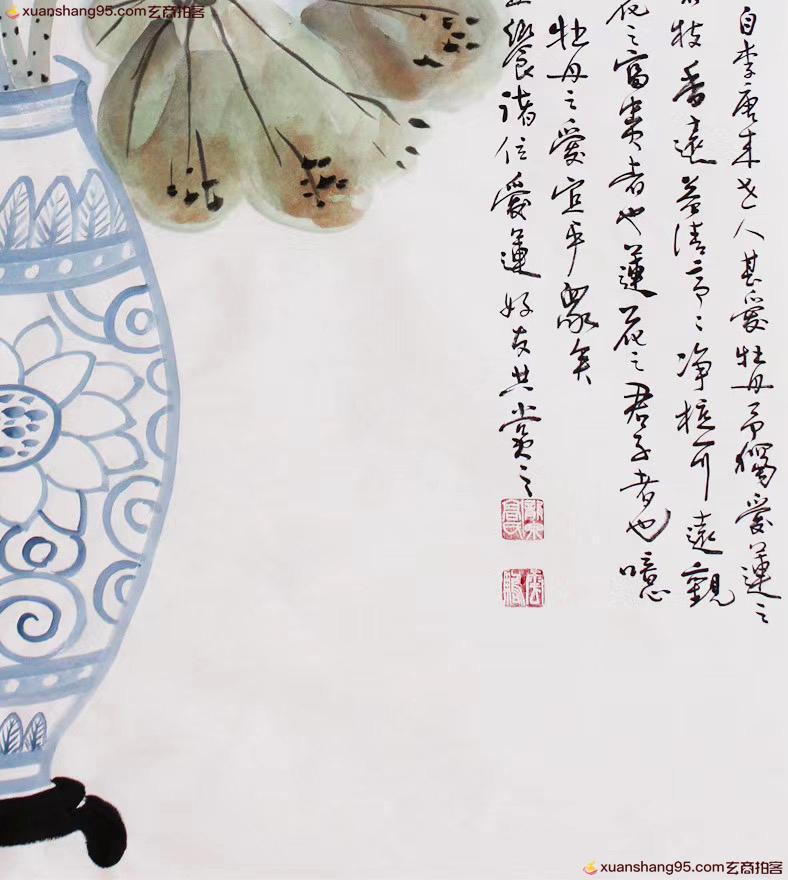 xuanshang95.com玄商拍客
自李唐来世人甚爱牡丹予独爱莲之
枝香遠益清亭亭净植可遠觀
花之富贵者也蓮花之君子者也噫
牡丹之愛宜乎衆矣
饗諸位愛蓮好友共赏之
xuanshang95.com玄商拍客